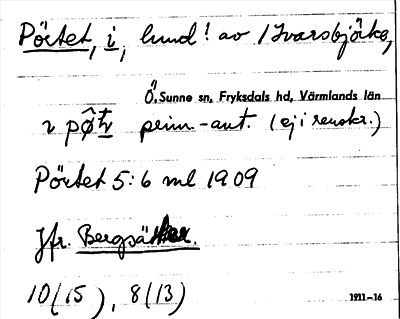 Pörtet, i, hund! av Ivarsbjörke,
Ö. Sunne sn, Fryksdals hd, Värmlands län
prim.-ant. (ej i renskr.)
Pörtet 5:6 ml 1909
Jfr. Bergsätter.
10(15), 8(13)
1911-16